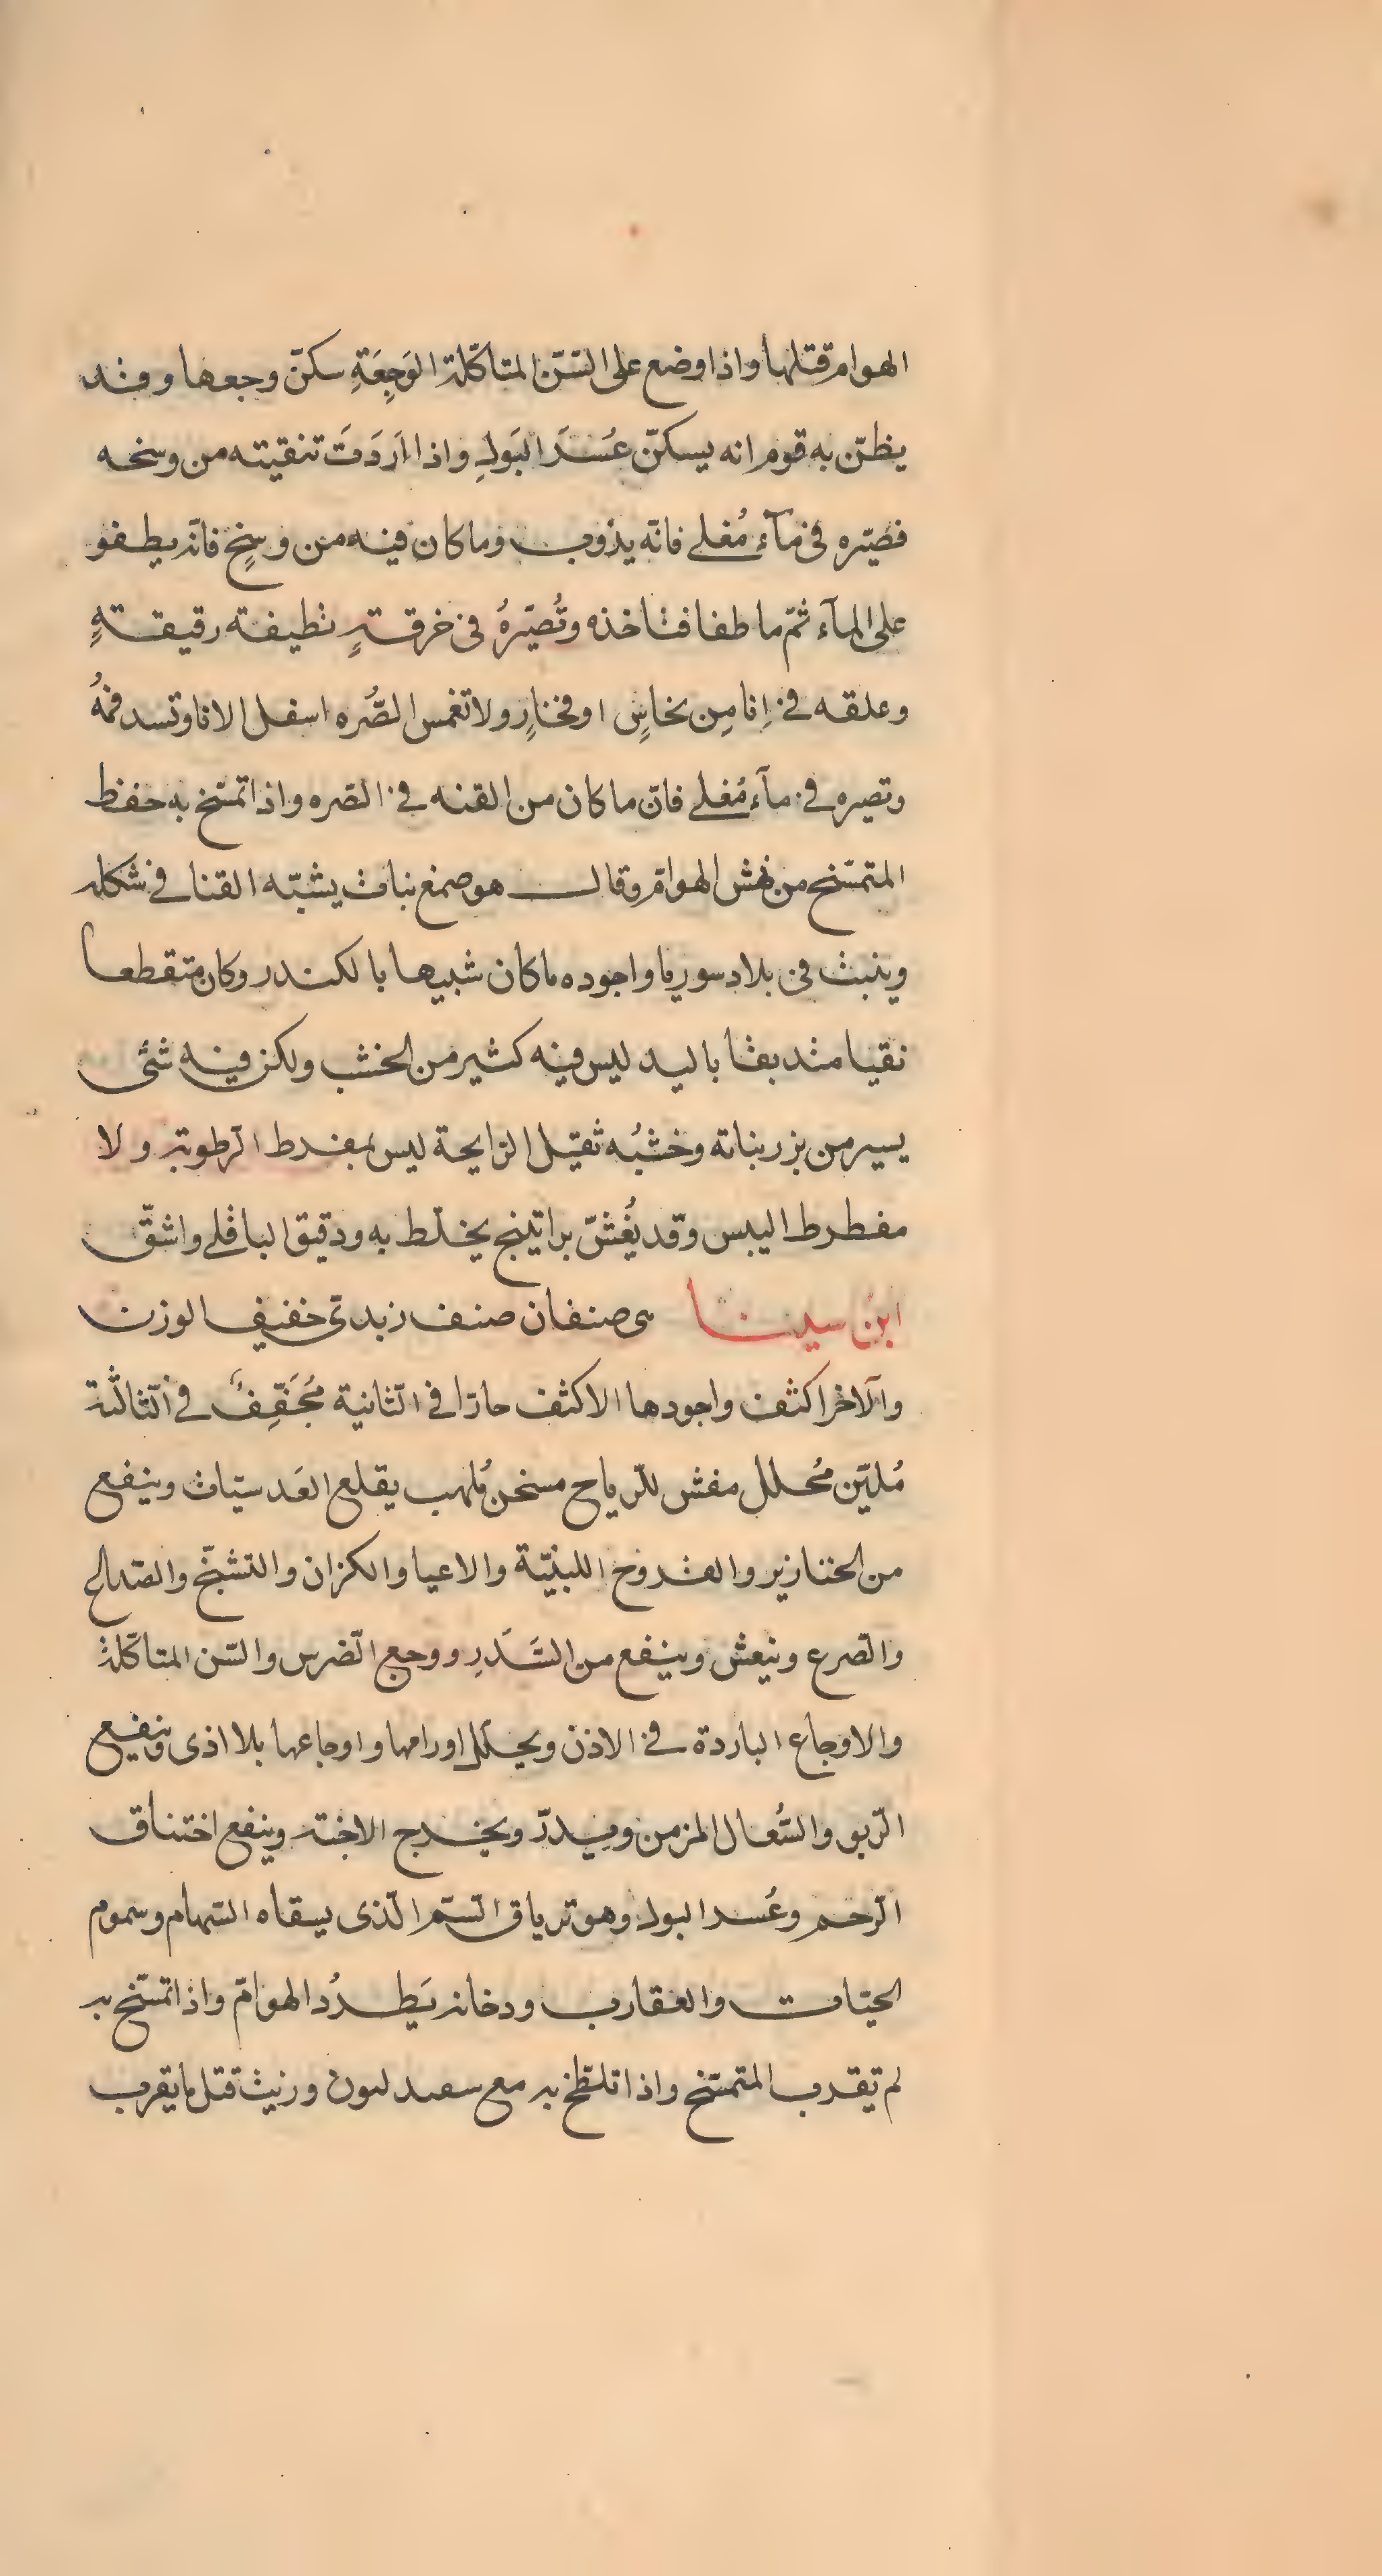 الهوام قتلها واذا وضع على السّنّ المتاكّلة الوَجِعَةِ سكنّ وجعها وقد
يظنّ به قوم انه يسكنّ عُسرَ البَولِ واذا اَرَدَتَ تنقيته من وسخه
فصيّره فى مآء مُغلى فانّه يذوب وما كان فيه من وسخٍ فانّه يطفو
على المآء ثمّ ما طفا فتاخذه وتُصيّرهُ فى خرقةٍ نظيفة رقيقةٍ
وعلقه فى إنا مِن نحاسٍ او فخارٍ ولا تغمس الصُّره اسفل الانا وتسد فمهُ
وتصيره فى مآء مُغلى فانّ ما كان من القنه فى الصّره واذا تمسّخ به حفظ
المتمسّخ من نهش الهوامّ وقال هو صمغ نبات يشبّه القنا فى شكله
وينبت فى بلاد سوريا واجوده ما كان شبيها بالكندر وكان متقطعا
نقيا متدبقا باليد ليس فيه كثير من الخشب ولكن فيه شئى
يسير من بزر بناته وخشبُه ثقيل الرايحة ليس بمفرط الرطوبة ولا
مفطرط اليبس وقد يُغشّ براتينج يخلّط به ودقيق الباقلى واشقّ
ابن سينا هى صنفان صنف زبدىّ خفيف الوزن
والآخر اكثف واجودها الاكثف حارّا فى الثّانية مُجَفِّفٌ فى الثّالثة
مُليّن مُحلل مفش للرّياح مسخن مُلهب يقلع العَدسيّات وينفع
من الخنازير والقروح اللبنيّة والاعيا والكزان والتشنّج والصّداع
والصّرع وينعش وينفع من السَّدَرِ ووجع الضّرس والسّن المتاكّلة
والاوجاع الباردة فى الاذن ويحلّل اورامها واوجاعها بلا اذى وينفع
الرّبو والسُّعال المزمن ويدرّ ويخرج الاجنة وينفع اختناق
الرّحم وعُسر البول وهو ترياق السّم الّذى يسقاه السّهام وسموم
الحيّات والعقارب ودخانه يَطردُ الهوامّ واذا تمسّخ به
لم تقرب المتمسّخ واذا تلطّخ به مع سعيد ليون وزيت قتل ما يقرب